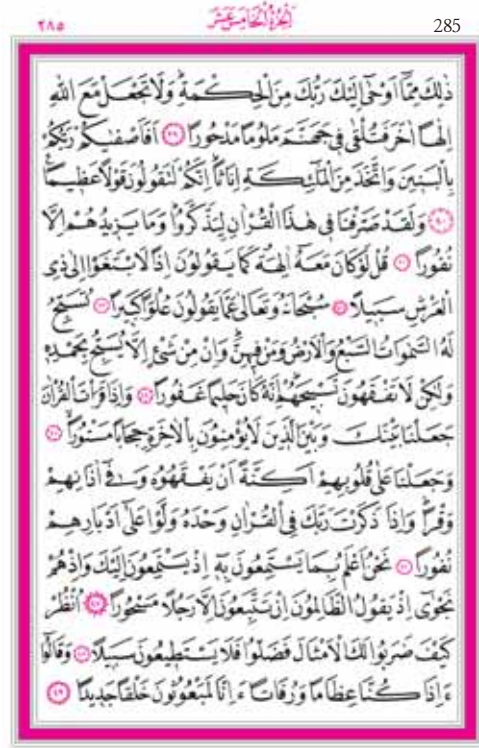 ٢٨٥ اَلْجُزْءُ الْخَامِسَ عَشَرَ 285
ذٰلِكَ مِمَّٓا اَوْحٰٓى اِلَيْكَ رَبُّكَ مِنَ الْحِكْمَةِۜ وَلَا تَجْعَلْ مَعَ اللّٰهِ
اِلٰهاً اٰخَرَ فَتُلْقٰى ف۪ي جَهَنَّمَ مَلُوماً مَدْحُوراً ﴿٣٩﴾ اَفَاَصْفٰيكُمْ رَبُّكُمْ
بِالْبَن۪ينَ وَاتَّخَذَ مِنَ الْمَلٰٓئِكَةِ اِنَاثاًۜ اِنَّكُمْ لَتَقُولُونَ قَوْلاً عَظ۪يماً۟
﴿٤٠﴾ وَلَقَدْ صَرَّفْنَا ف۪ي هٰذَا الْقُرْاٰنِ لِيَذَّكَّرُواۜ وَمَا يَز۪يدُهُمْ اِلَّا
نُفُوراً ﴿٤١﴾ قُلْ لَوْ كَانَ مَعَهُٓ اٰلِهَةٌ كَمَا يَقُولُونَ اِذاً لَابْتَغَوْا اِلٰى ذِي
الْعَرْشِ سَب۪يلاً ﴿٤٢﴾ سُبْحَانَهُ وَتَعَالٰى عَمَّا يَقُولُونَ عُلُواًّ كَب۪يراً ﴿٤٣﴾ تُسَبِّحُ
لَهُ السَّمٰوَاتُ السَّبْعُ وَالْاَرْضُ وَمَنْ ف۪يهِنَّۜ وَاِنْ مِنْ شَيْءٍ اِلَّا يُسَبِّحُ بِحَمْدِه۪
وَلٰكِنْ لَا تَفْقَهُونَ تَسْب۪يحَهُمْۜ اِنَّهُ كَانَ حَل۪يماً غَفُوراً ﴿٤٤﴾ وَاِذَا قَرَأْتَ الْقُرْاٰنَ
جَعَلْنَا بَيْنَكَ وَبَيْنَ الَّذ۪ينَ لَا يُؤْمِنُونَ بِالْاٰخِرَةِ حِجَاباً مَسْتُوراًۙ ﴿٤٥﴾
وَجَعَلْنَا عَلٰى قُلُوبِهِمْ اَكِنَّةً اَنْ يَفْقَهُوهُ وَف۪ٓي اٰذَانِهِمْ
وَقْراًۜ وَاِذَا ذَكَرْتَ رَبَّكَ فِي الْقُرْاٰنِ وَحْدَهُ وَلَّوْا عَلٰٓى اَدْبَارِهِمْ
نُفُوراً ﴿٤٦﴾ نَحْنُ اَعْلَمُ بِمَا يَسْتَمِعُونَ بِه۪ٓ اِذْ يَسْتَمِعُونَ اِلَيْكَ وَاِذْ هُمْ
نَجْوٰٓى اِذْ يَقُولُ الظَّالِمُونَ اِنْ تَتَّبِعُونَ اِلَّا رَجُلاً مَسْحُوراً ﴿٤٧﴾ اُنْظُرْ
كَيْفَ ضَرَبُوا لَكَ الْاَمْثَالَ فَضَلُّوا فَلَا يَسْتَط۪يعُونَ سَب۪يلاً ﴿٤٨﴾ وَقَالُٓوا
ءَاِذَا كُنَّا عِظَاماً وَرُفَاتاً ءَاِنَّا لَمَبْعُوثُونَ خَلْقاً جَد۪يداً ﴿٤٩﴾